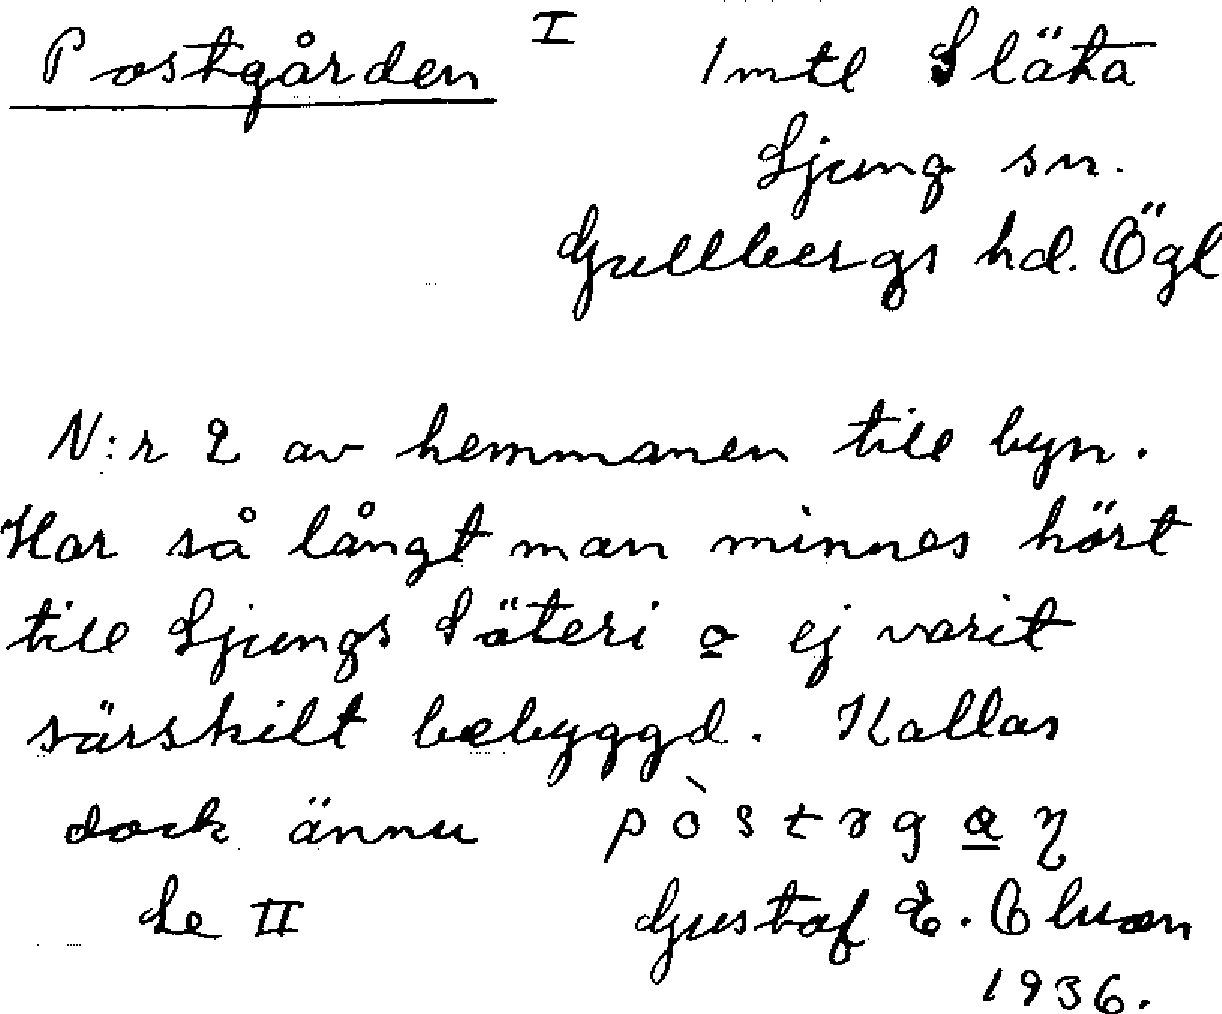 Postgården I 1 mtl Släta
Ljung sn.
Gullbergs hd. Ögl
N:r 2 av hemmanen till byn.
Har så långt man minnes hört
till Ljungs Säteri o ej varit
särskilt bebyggd. Kallas
dock ännu
Se II Gustaf E.
1936.